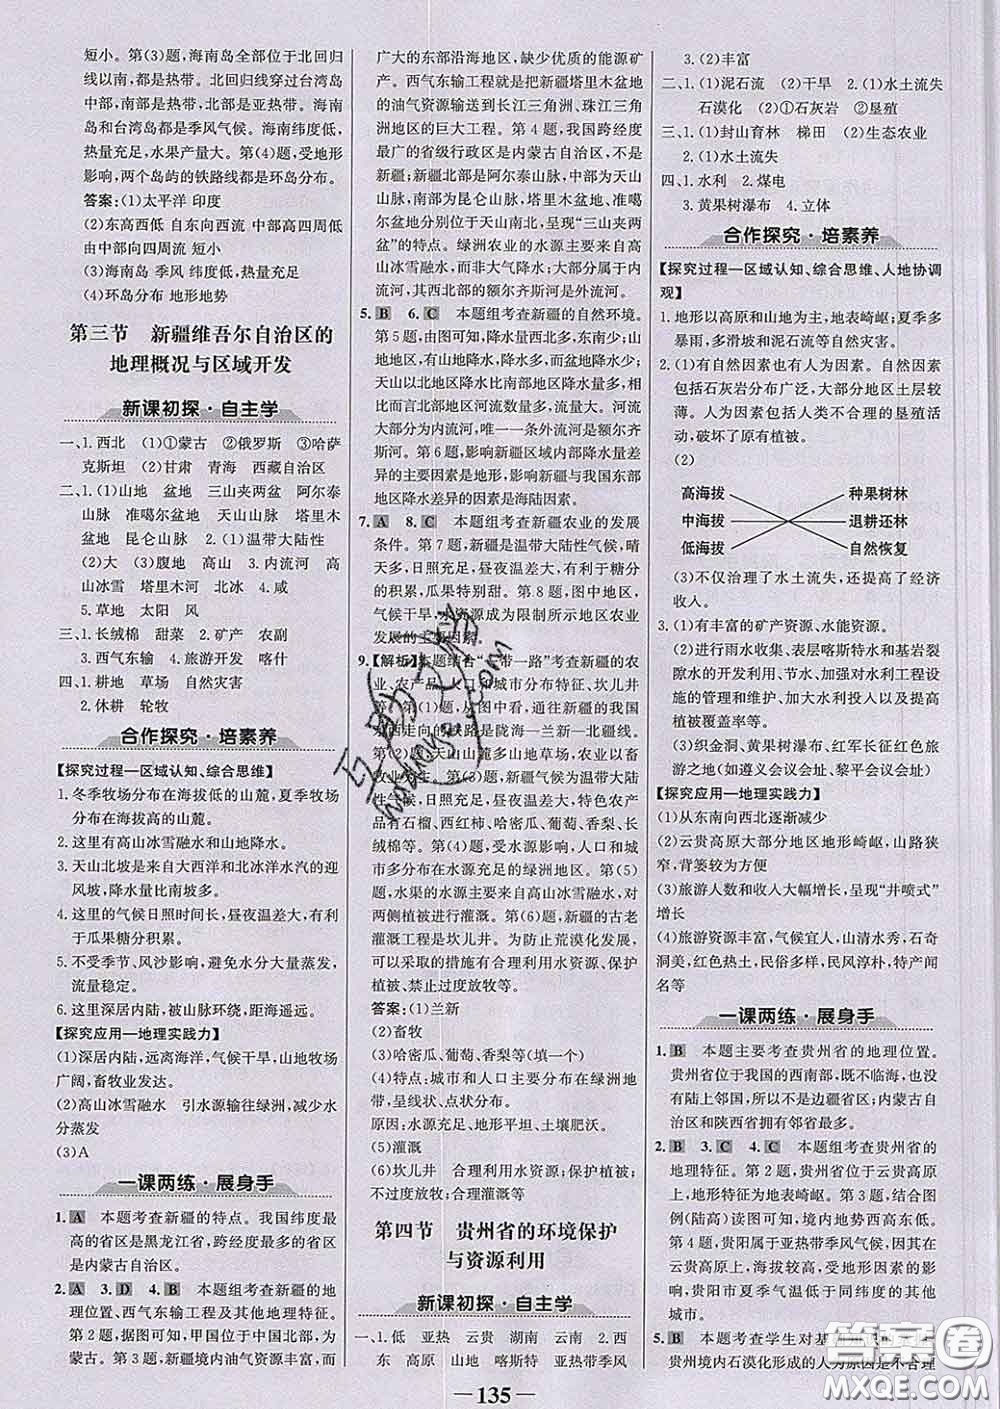 短小。第(3)题,海南岛全部位于北回归
线以南,都是热带。北回归线穿过台湾岛
中部,南部是热带,北部是亚热带。海南
岛和台湾岛都是季风气候。海南纬度低,
热量充足,水果产量大。第(4)题,受地形
影响,两个岛屿的铁路线都是环岛分布。
答案:(1)太平洋 印度
(2)东高西低 自东向西流 中部高四周低
由中部向四周流 短小
(3)海南岛 季风 纬度低,热量充足
(4)环岛分布 地形地势
第三节 新疆维吾尔自治区的
地理概况与区域开发
新课初探·自主学
一、1.西北 (1)①蒙古 ②俄罗斯 ③哈萨
克斯坦 (2)甘肃 青海 西藏自治区
二、1.(1)山地 盆地 三山夹两盆 阿尔泰
山脉 准噶尔盆地 天山山脉 塔里木
盆地 昆仑山脉 2.(1)温带大陆性
(2)大 (3)山地 腹地 3.内流河 高
山冰雪 塔里木河 北冰 4.咸
5.草地 太阳 风
三、1.长绒棉 甜菜 2.矿产 农副
3.西气东输 4.旅游开发 喀什
四、1.耕地 草场 自然灾害
2.休耕 轮牧
合作探究·培素养
【探究过程—区域认知、综合思维】
1.冬季牧场分布在海拔低的山麓,夏季牧场
分布在海拔高的山麓。
2.这里有高山冰雪融水和山地降水。
3.天山北坡是来自大西洋和北冰洋水汽的迎
风坡,降水量比南坡多。
4.这里的气候日照时间长,昼夜温差大,有利
于瓜果糖分积累。
5.不受季节、风沙影响,避免水分大量蒸发,
流量稳定。
6.这里深居内陆,被山脉环绕,距海遥远。
【探究应用—地理实践力】
(1)深居内陆,远离海洋,气候干旱,山地牧场
广阔,畜牧业发达。
(2)高山冰雪融水 引水源输往绿洲,减少水
分蒸发
(3)A
一课两练·展身手
1. A 本题考查新疆的特点。我国纬度最
高的省区是黑龙江省,跨经度最多的省区
是内蒙古自治区。
2. A 3. D 4. B 本题组考查新疆的
地理位置、西气东输工程及其他地理特征。
第2题,据图可知,甲国位于中国北部,为
蒙古。第3题,新疆境内油气资源丰富,而
广大的东部沿海地区,缺少优质的能源矿
产。西气东输工程就是把新疆塔里木盆地
的油气资源输送到长江三角洲、珠江三角
洲地区的巨大工程。第4题,我国跨经度
最广的省级行政区是内蒙古自治区,不是
新疆;新疆北部是阿尔泰山脉,中部为天山
山脉,南部为昆仑山脉,塔里木盆地、准噶
尔盆地分别位于天山南北,呈现“三山夹两
盆”的特点。绿洲农业的水源主要来自高
山冰雪融水,而非大气降水;大部分属于内
流河。其北部的额尔齐斯河是外流河。
5. B 6. C 本题组考查新疆的自然环境。
第5题,图中可以看出,降水量西北多,东南少;山
地降水多,而盆地降水少;
天山以北地区降水比南部地区降水量多,
相比而言北部地区河流数量多,流量大。河流
大部分为内流河,唯一一条外流河是额尔齐
斯河。第6题,影响新疆区域内部降水量差
异的主要因素是地形,影响新疆与我国东部
地区降水差异的因素是海陆因素。
7. A 8. C 本题组考查新疆农业的发展
条件。第7题,新疆是温带大陆性气候,晴
天多,日照充足,昼夜温差大,有利于糖分
的积累,瓜果特别甜。第8题,图中地区,
气候干旱,水资源成为限制所示地区农业
发展的主要因素。
9.【解析】本题结合“一带一路”考查新疆的农
业、农产品、人口和城市分布特征、坎儿井
等。第(1)题,从图中看,通往新疆的我国
东西走向的铁路是陇海—兰新—北疆线。
第(2)题,天山山麓多山地草场,农业以畜
牧业为主。第(3)题,新疆为温带大陆性
气候,日照充足,昼夜温差大,特色农产
品有石榴、西红柿、哈密瓜、葡萄、香梨、长
绒棉等。第(4)题,受水源影响,人口和城
市多分布在水源充足的绿洲地区。第(5)
题,水渠的水源主要来自高山冰雪融水,可
以为两侧植被进行灌溉。第(6)题,新疆的古老
灌溉工程是坎儿井。为防止荒漠化发展,
可以采取的措施有合理利用水资源、保护
植被、禁止过度放牧等。
答案:(1)兰新
(2)畜牧
(3)哈密瓜、葡萄、香梨等(填一个)
(4)特点:城市和人口主要分布在绿洲地
带,呈线状、点状分布。
原因:水源充足、地形平坦、土壤肥沃。
(5)灌溉
(6)坎儿井 合理利用水资源;保护植被;
不过度放牧;合理灌溉等
第四节 贵州省的环境保护
与资源利用
新课初探·自主学
一、1.低 亚热 云贵 湖南 云南 2.西
东 高原 山地 喀斯特 亚热带季风
3.(2)丰富
二、1.(1)泥石流 (2)干旱 2.(1)水土流失
石漠化 (2)①石灰岩 ②垦殖
三、1.(1)封山育林 梯田 (2)生态农业
2.(1)水土流失
四、1.水利 2.煤电
3.黄果树瀑布 4.立体
合作探究·培素养
【探究过程—区域认知、综合思维、人地协调
观】
1.地形以高原和山地为主,地表崎岖;夏季多
暴雨,多滑坡和泥石流等自然灾害。
2.(1)既有自然因素也有人为因素。自然因素
包括石灰岩分布广泛,大部分地区土层较
薄。人为因素包括人类不合理的垦殖活
动,破坏了原有植被。
(2)
高海拔 种果树林
中海拔 退耕还林
低海拔 自然恢复
(3)不仅治理了水土流失,还提高了经济
收入。
3.(1)有丰富的矿产资源、水能资源。
(2)进行雨水收集、表层喀斯特水和基岩裂
隙水的开发利用、节水、加强对水利工程设
施的管理和维护、加大水利投入以及提高
植被覆盖率等。
(3)织金洞、黄果树瀑布、红军长征红色旅
游之地(如遵义会议会址、黎平会议会址)
【探究应用—地理实践力】
(1)从东南向西北逐渐减少
(2)云贵高原大部分地区地形崎岖,山路狭
窄,背篓较为方便
(3)旅游人数和收入大幅增长,呈现“井喷式”
增长
(4)旅游资源丰富,气候宜人,山清水秀,石奇
洞美,红色热土,民俗多样,民风淳朴,特产闻
名等
一课两练·展身手
1. B 本题主要考查贵州省的地理位置。
贵州省位于我国的西南部,既不临海,也
没有陆上邻国,所以不是边疆省区;内蒙古自
治区和陕西省拥有邻省最多。
2. B 3. C 4. C 本题组考查贵州省的
地理特征。第2题,贵州省位于云贵高原
上,地形特征为地表崎岖。第3题,结合图
例(陆高)读图可知,境内地势西高东低。
第4题,贵阳属于亚热带季风气候,与同处
云贵高原的昆明相比,海拔较高,离海洋较
近,受海洋影响显著,云量大,阴雨天气多,
贵阳市夏季气温低于同纬度的其他
城市。
5. B 本题考查学生对基
贵州境内石漠化形成的人为原因是不合理
135
答案圈
MXQE.COM